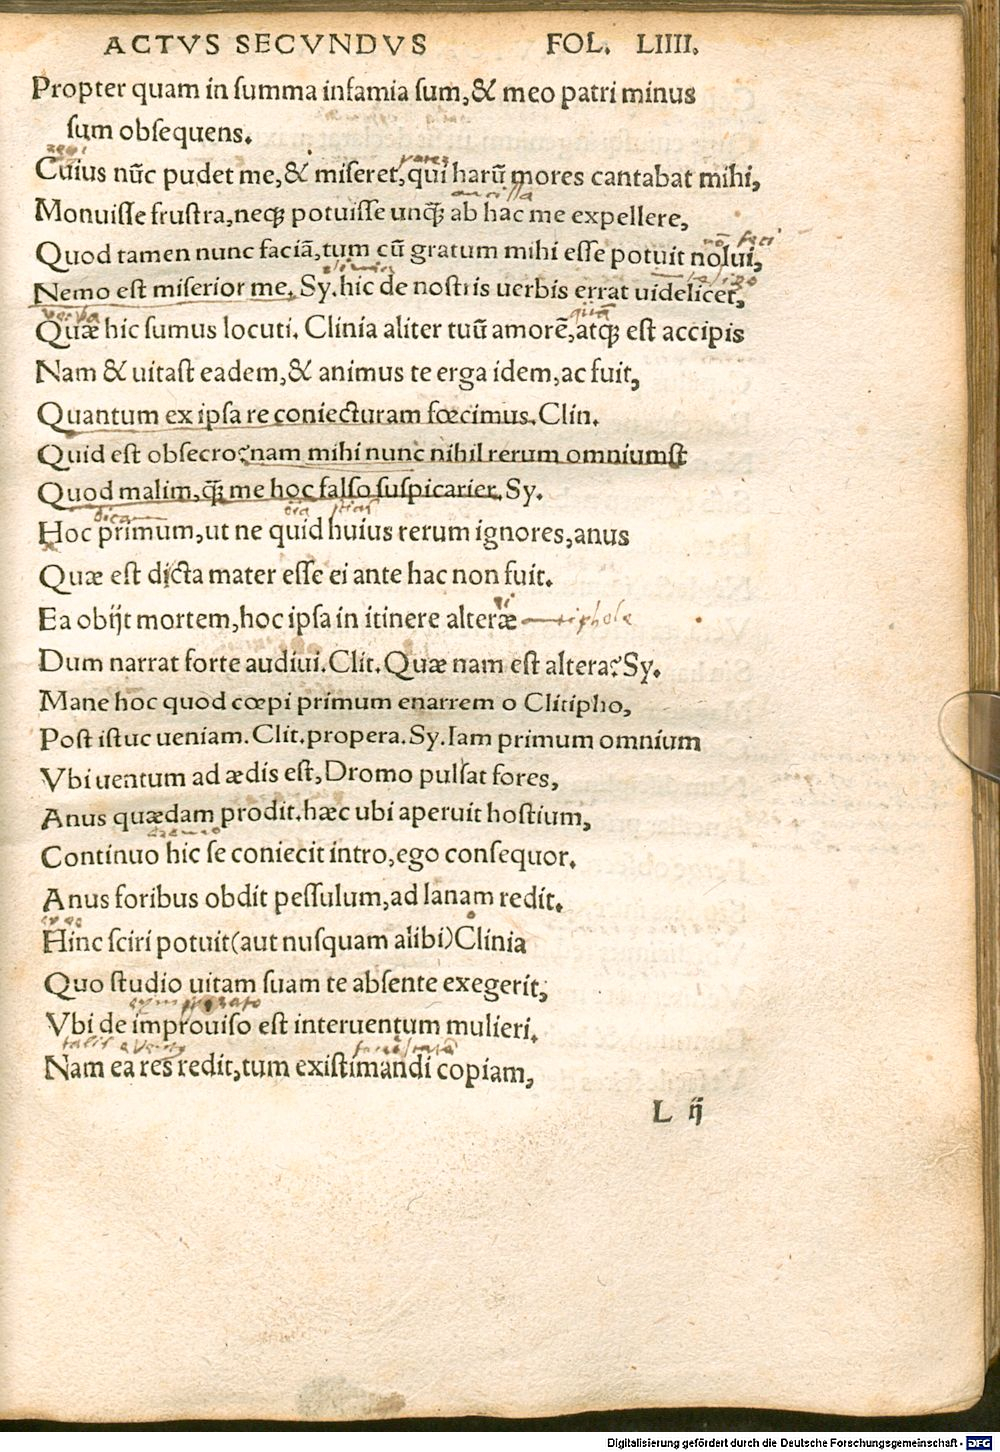 ACTVS SECVNDVS FOL. LIIII.
Propter quam in summa infamia sum, & meo patri minus
sum obsequens.
Cuius nūc pudet me, & miseret, qui harū mores cantabat mihi,
ancilla
Monuisse frustra, neqꝫ potuisse unq̄ ab hac me expellere,
Quod tamen nunc faciā, tum cū gratum mihi esse potuit nolui,
Nemo est miserior me. Sy. hic de nostris uerbis errat uidelicet,
verba
Quæ hic sumus locuti. Clinia aliter tuū amorē, atqꝫ est accipis
Nam & uitast eadem, & animus te erga idem, ac fuit,
Quantum ex ipsa re coniecturam fœcimus. Clin.
Quid est obsecro? nam mihi nunc nihil rerum omniumst
Quod malim, q̄ me hoc falso suspicarier. Sy.
dicam
Hoc primum, ut ne quid huius rerum ignores, anus
Quæ est dicta mater esse ei ante hac non fuit.
Ea obijt mortem, hoc ipsa in itinere alteræ antiphole
Dum narrat forte audiui. Clit. Quæ nam est altera? Sy.
Mane hoc quod cœpi primum enarrem o Clitipho,
Post istuc ueniam. Clit. propera. Sy. Iam primum omnium
Vbi uentum ad ædis est, Dromo pulsat fores,
Anus quædam prodit. hæc ubi aperuit hostium,
Continuo hic se coniecit intro, ego consequor.
Anus foribus obdit pessulum, ad lanam redit.
Hinc sciri potuit (aut nusquam alibi) Clinia
Quo studio uitam suam te absente exegerit,
Vbi de improuiso est interuentum mulieri.
Nam ea res redit, tum existimandi copiam,
L ij
Digitalisierung gefördert durch die Deutsche Forschungsgemeinschaft - DFG